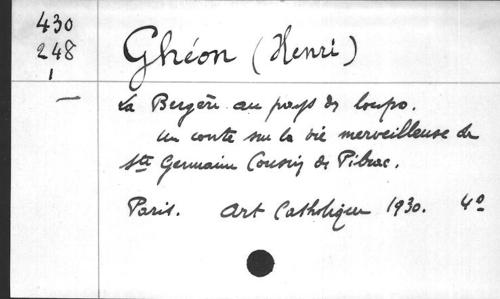 430
248
1
Ghéon (Henri)
La Bergère au pays des loups.
un conte sur la vie merveilleuse de
Ste Germaine Cousin de Pibrac.
Paris. Art Catholique 1930. 4º